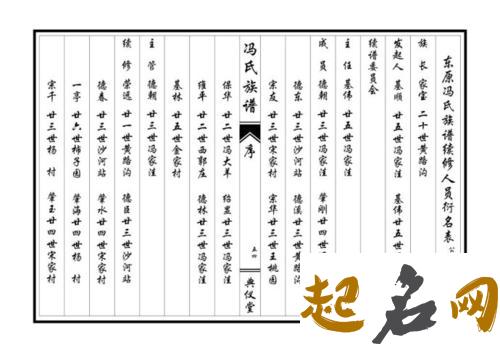 东原冯氏族谱续修人员衍名表
族 长 家宝 二十世黄路沟
发起人 基顺 廿五世冯家洼 基伟 廿五世
续谱委员会
主 任 基伟 廿五世冯家洼
成 员 德朝 廿三世冯家洼 肇刚 廿四世
德东 廿三世沙河站 德溪 廿三世黄
宗友 廿三世宋家村 宗华 廿三世王桃园
冯氏族谱 序 五四 典仪堂
保华 廿二世冯大羊 廿三世冯家洼
维平 廿二世西郭庄 德林 廿三世冯家洼
基林 廿五世金家村
主 管 德朝 廿三世冯家洼
续 修 荣远 廿一世黄路沟 德臣 廿三世沙河站
德春 廿三世沙河站 肇水 廿四世宋家村
一亭 廿六世柿子园 肇海 廿四世杨 村
宗干 廿三世杨 村 肇玉 廿四世宋家村
起名网